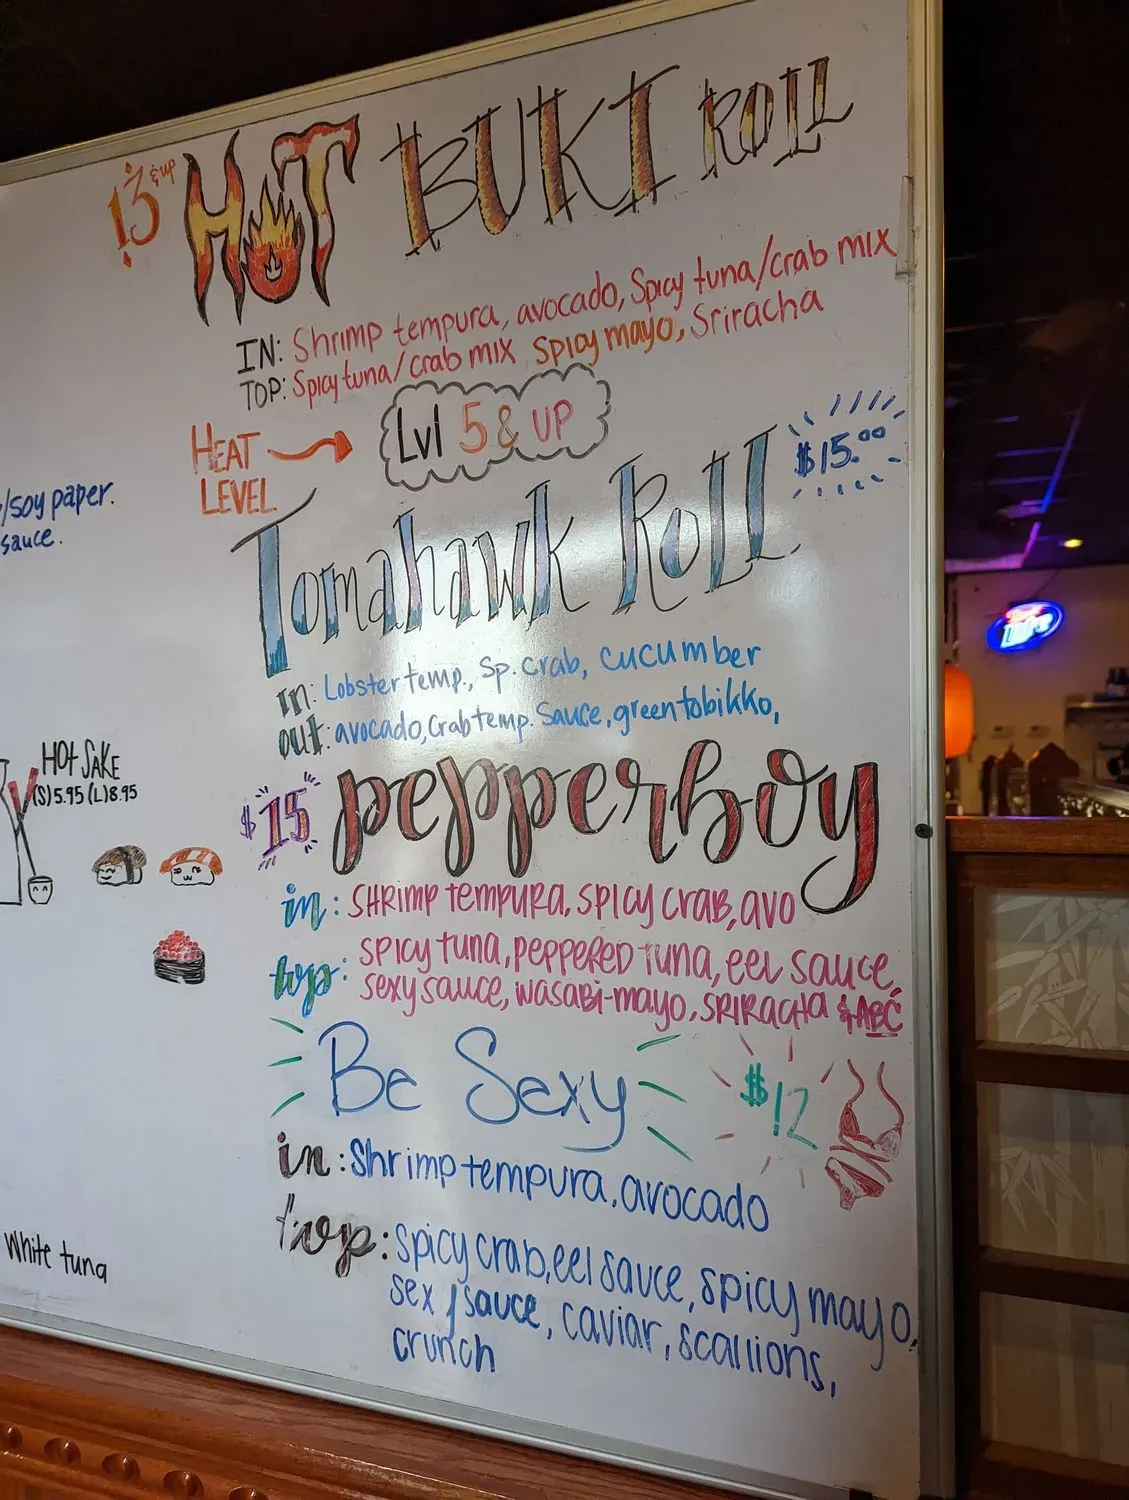 13 & up HOT BUKI ROLL
IN: Shrimp tempura, avocado, Spicy tuna/crab mix
TOP: Spicy tuna/crab mix Spicy mayo, Sriracha
HEAT LEVEL
Lvl 5 & UP
Tomahawk Roll $15.00
in: Lobster temp., Sp. crab, cucumber
out: avocado, Crab temp. Sauce, green tobikko,
$15 pepperboy
in: SHRImp tempURA, SPICY CRAB, avo
top: SPICY tuna, PEPPERED TUNA, eel sauce,
sexy sauce, WASABI-mayo, SRIRACHA & ABC
Be Sexy $12
in: Shrimp tempura, avocado
top: spicy crab, eel sauce, spicy mayo,
sexy sauce, caviar, scallions,
crunch
/soy paper.
sauce.
HOT SAKE
(S) 5.95 (L) 8.95
White tuna